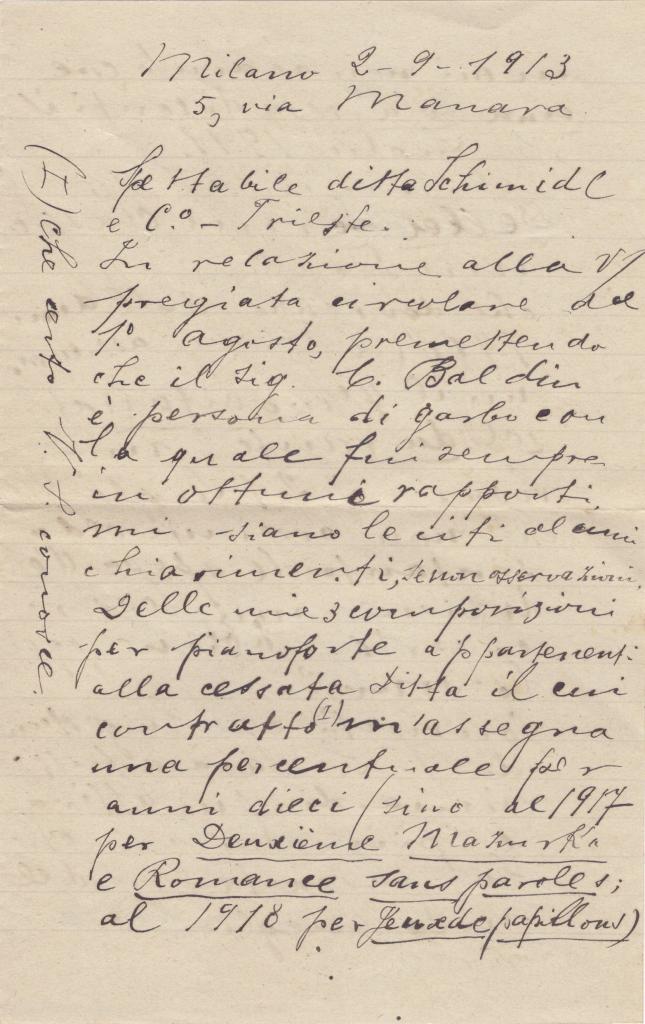 Milano 2-9-1913
5, via Manara
Spettabile ditta Schimidl
e C.º - Trieste.
In relazione alla V/
pregiata circolare del
1.º agosto, premettendo
che il sig. C. Baldin
è persona di garbo con
la quale fui sempre
in ottimi rapporti,
mi siano leciti alcuni
chiarimenti, se non osservazioni.
Delle mie 3 composizioni
per pianoforte appartenenti
alla cessata Ditta il cui
contratto (I) m'assegna
una percentuale per
anni dieci (sino al 1917
per Deuxième Mazurka
e Romance sans paroles;
al 1918 per Jeux de papillons)
(I) che certo V. S. conosce.